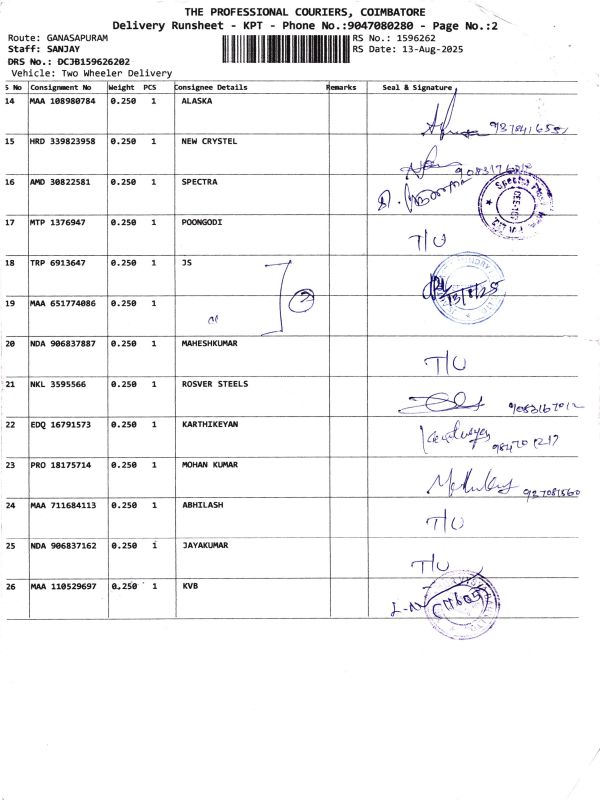 THE PROFESSIONAL COURIERS, COIMBATORE
Delivery Runsheet - KPT - Phone No.:9047080280 - Page No.:2
Route: GANASAPURAM
RS No.: 1596262
Staff: SANJAY
RS Date: 13-Aug-2025
DRS No.: DCJB159626202
Vehicle: Two Wheeler Delivery
S No Consignment No Weight PCS Consignee Details Remarks Seal & Signature
14 MAA 108980784 0.250 1 ALASKA
15 HRD 339823958 0.250 1 NEW CRYSTEL
16 AMD 30822581 0.250 1 SPECTRA
17 MTP 1376947 0.250 1 POONGODI T/U
18 TRP 6913647 0.250 1 JS 13/8/25
19 MAA 651774086 0.250 1 2
20 NDA 906837887 0.250 1 MAHESHKUMAR T/U
21 NKL 3595566 0.250 1 ROSVER STEELS 9083167012
22 EDQ 16791573 0.250 1 KARTHIKEYAN
23 PRO 18175714 0.250 1 MOHAN KUMAR
24 MAA 711684113 0.250 1 ABHILASH T/U
25 NDA 906837162 0.250 1 JAYAKUMAR T/U
26 MAA 110529697 0.250 1 KVB